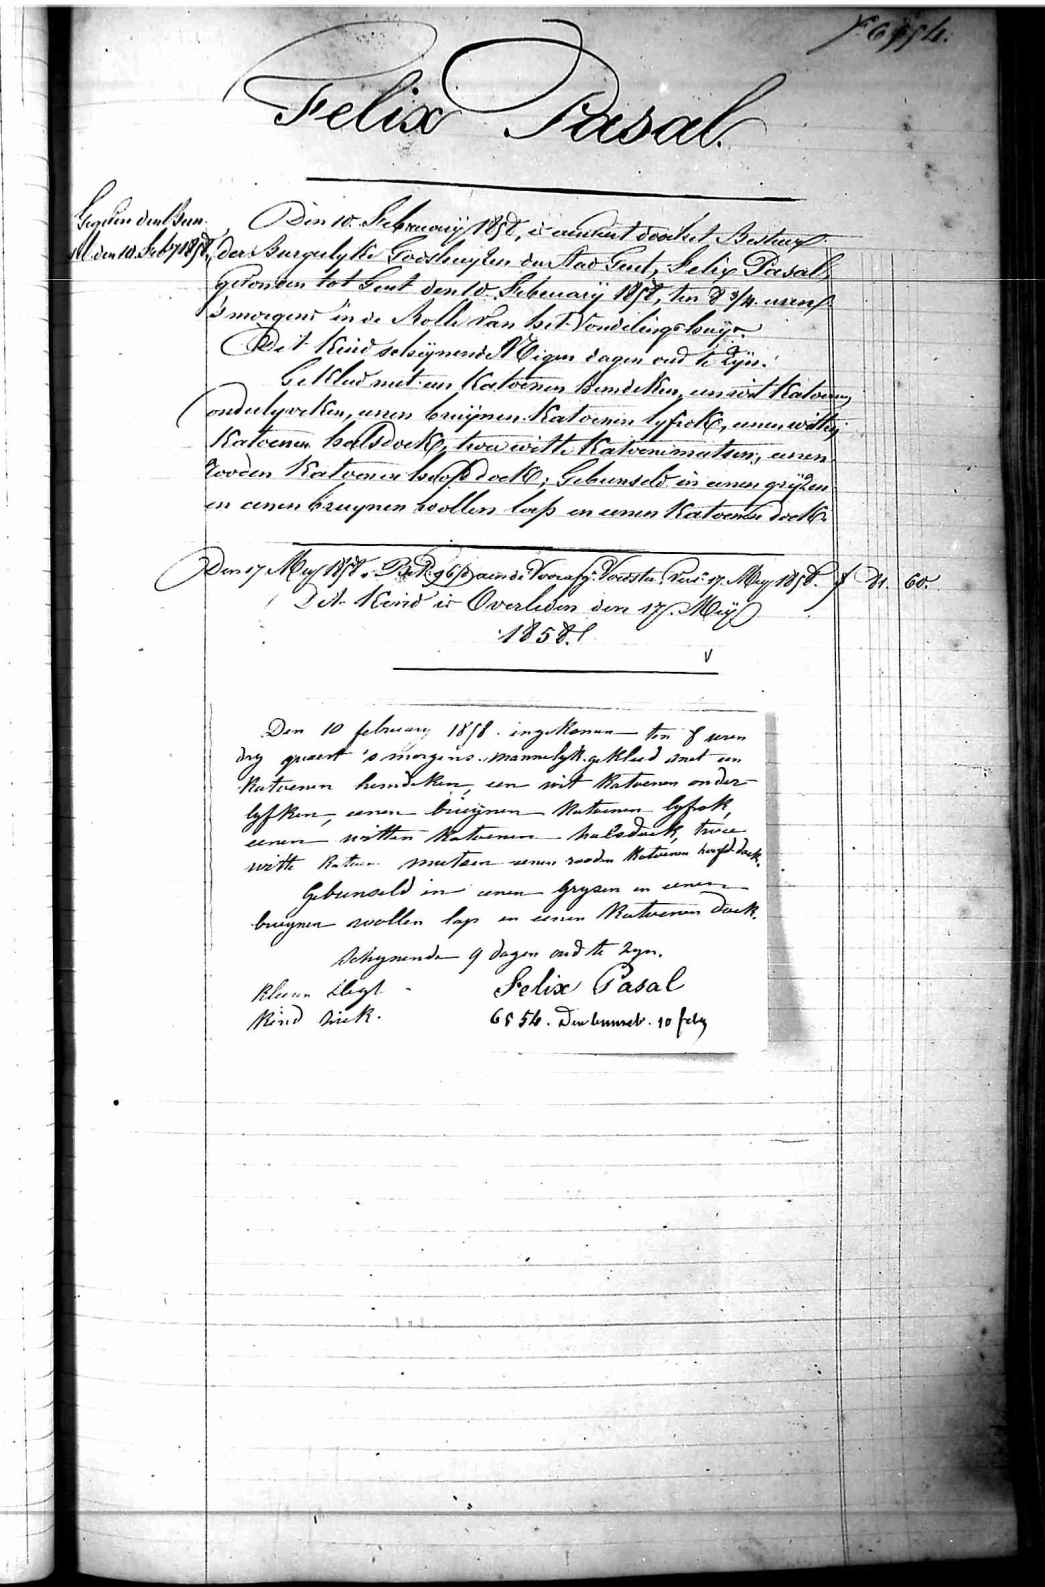 6554.
Felix Pasal.
den 10. Feby 1858,
Den 10. February 1858, is aenveert door het Bestuer
der Burgerlyke Godshuyzen der Stad Gent, Felix Pasal,
gevonden tot Gent den 10. February 1858, ten 8 3/4 uren
's morgens in de Rolle van het Vondelingshuys.
Dit Kind schynende Negen dagen oud te zyn.
Gekleed met een Katoenen hemdeken, een wit Katoenen
onderlyveken, eenen bruynen Katoenen lyfrok, eenen witten
Katoenen halsdoek, twee witte Katoenen mutsen, eenen
rooden Katoenen hoofddoek; Gebunseld in eenen gryzen
en eenen bruynen wollen lap en eenen Katoenen doek.
Den 17 Mey 1858. aen de Voorster 17. Mey 1858. f 60.
Dit Kind is Overleden den 17. Mey
1858.
Den 10 february 1858. ingekomen ten 8 uren
dry quaert 's morgens. mannelyk. gekleed met een
katoenen hemdeken, een wit katoenen onder
lyfken, eenen bruynen katoenen lyfrok,
eenen witten katoenen halsdoek, twee
witte katoenen mutsen eenen rooden katoenen hoofd doek.
Gebunseld in eenen grysen en eenen
bruynen wollen lap en eenen Katoenen doek.
schynende 9 dagen oud te zyn.
kleeren slegt Felix Pasal
Kind ziek. 6554. 10 feby